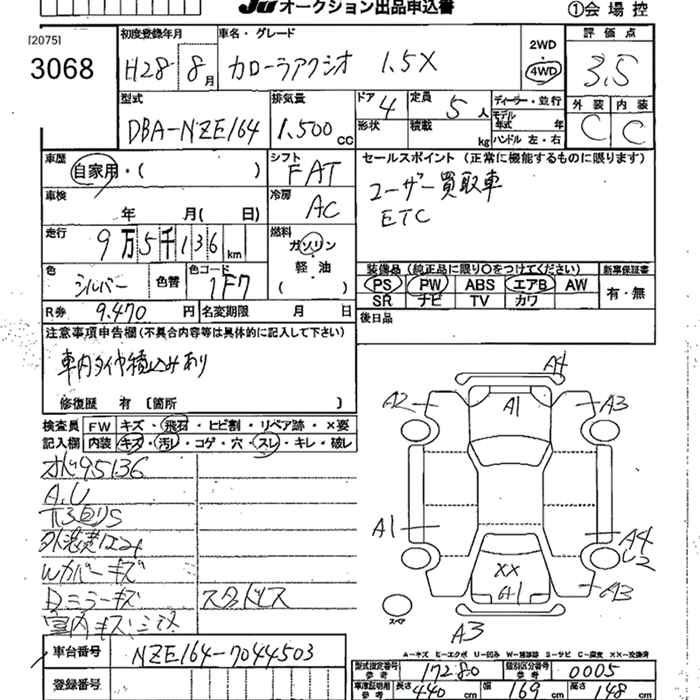 JU オークション出品申込書
①会場控
[2075]
3068
初度登録年月
H28 8月
車名・グレード
カローラアクシオ 1.5X
2WD
・
4WD
評価点
3.5
型式
DBA-NZE164
排気量
1,500cc
ドア
4
定員
5人
形状
積載
kg
ディーラー・並行
モデル年式 年
ハンドル 左・右
外装
C
内装
C
車歴
自家用・( )
シフト
FAT
車検
年 月( 日)
冷房
AC
走行
9万5千136km
燃料
ガソリン
軽・油
( )
色
シルバー
色替
色コード
1F7
R券
9,470
名変期限 月 日
セールスポイント (正常に機能するものに限ります)
ユーザー買取車
ETC
装備品 (純正品に限り○をつけてください)
新車保証書
PS PW ABS エアB AW
SR ナビ TV カワ
有・無
後日品
注意事項申告欄(不具合内容等は具体的に記入して下さい)
車内タイヤ積込みあり
修復歴 有 〔箇所 〕
検査員
記入欄
FW キズ・飛石・ヒビ割・リペア跡・×要
内装 キズ・汚レ・コゲ・穴・スレ・キレ・破レ
95136
A.U
Wカバーキズ
Dミラーキズ
スタッドレス
A4
A2
A1
A3
A1
A4
U2
XX
A3
A3
スペア
A-キズ E-エクボ U-凹み W-補修跡 S-サビ C-腐食 XX-交換済
車台番号
NZE164-7044503
登録番号
型式指定番号
参考
17280
類別区分番号
参考
0005
車庫証明用
参考
長さ
440cm
幅
169cm
高さ
148cm